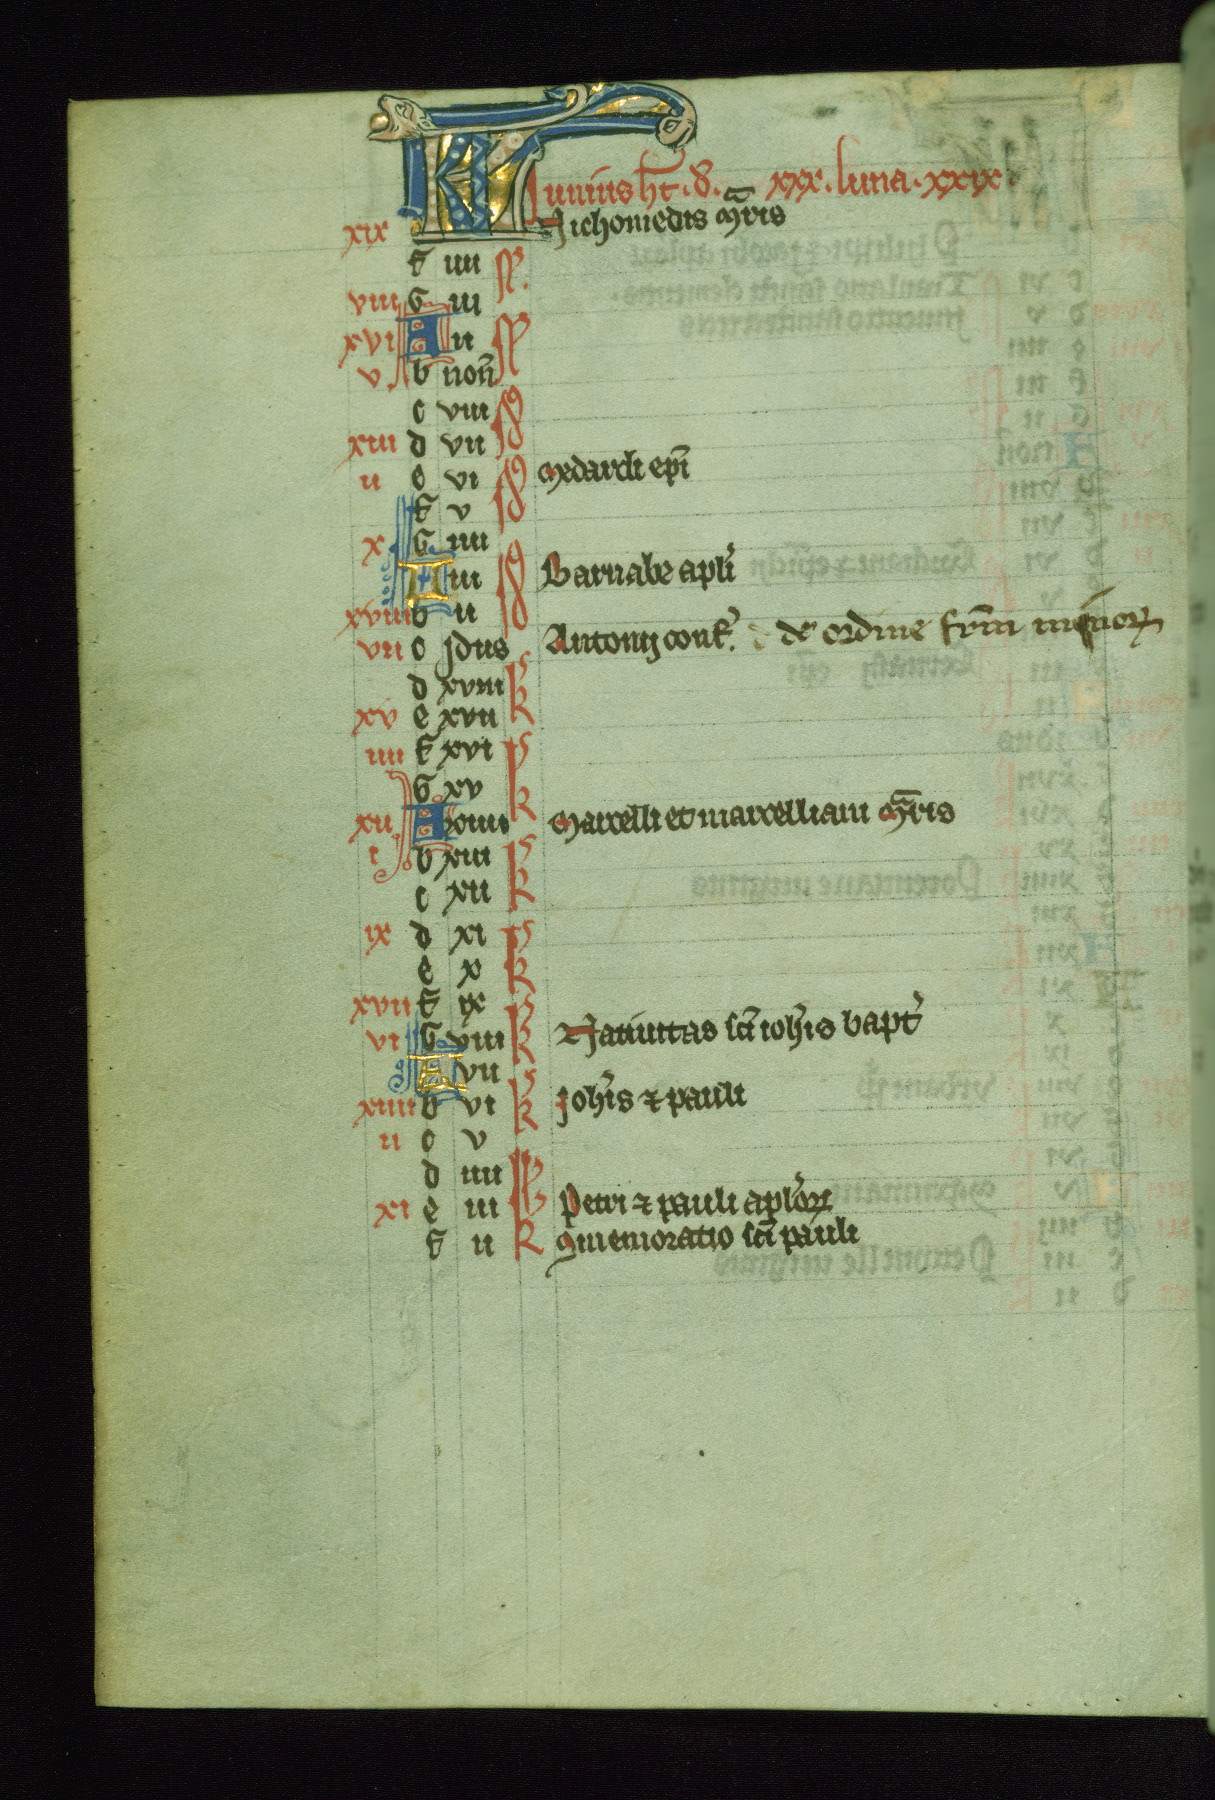 KL Iunius ht. d. xxx. luna. xxix.
xix Nichomedis mris
f iiii N
viii G iii
xvi A ii N
v b non
c viii Id
xiii d vii
ii e vi Id Medardi epi
f v
x G iiii
A iii Id Barnabe apli
xviii b ii
vii c idus Antonij conf. de ordine frm minor
d xviii K
xv e xvii
iiii f xvi K
G xv
xii A xiiii Marcelli et marcelliani mris
i b xiii K
c xii
ix d xi K
e x
xvii f ix K
vi G viii Natiuitas sci iohis bapt
A vii K
xiiii b vi Iohis ⁊ pauli
ii c v
d iiii K
xi e iii Petri ⁊ pauli aplor
f ii K Gmemoratio sci pauli